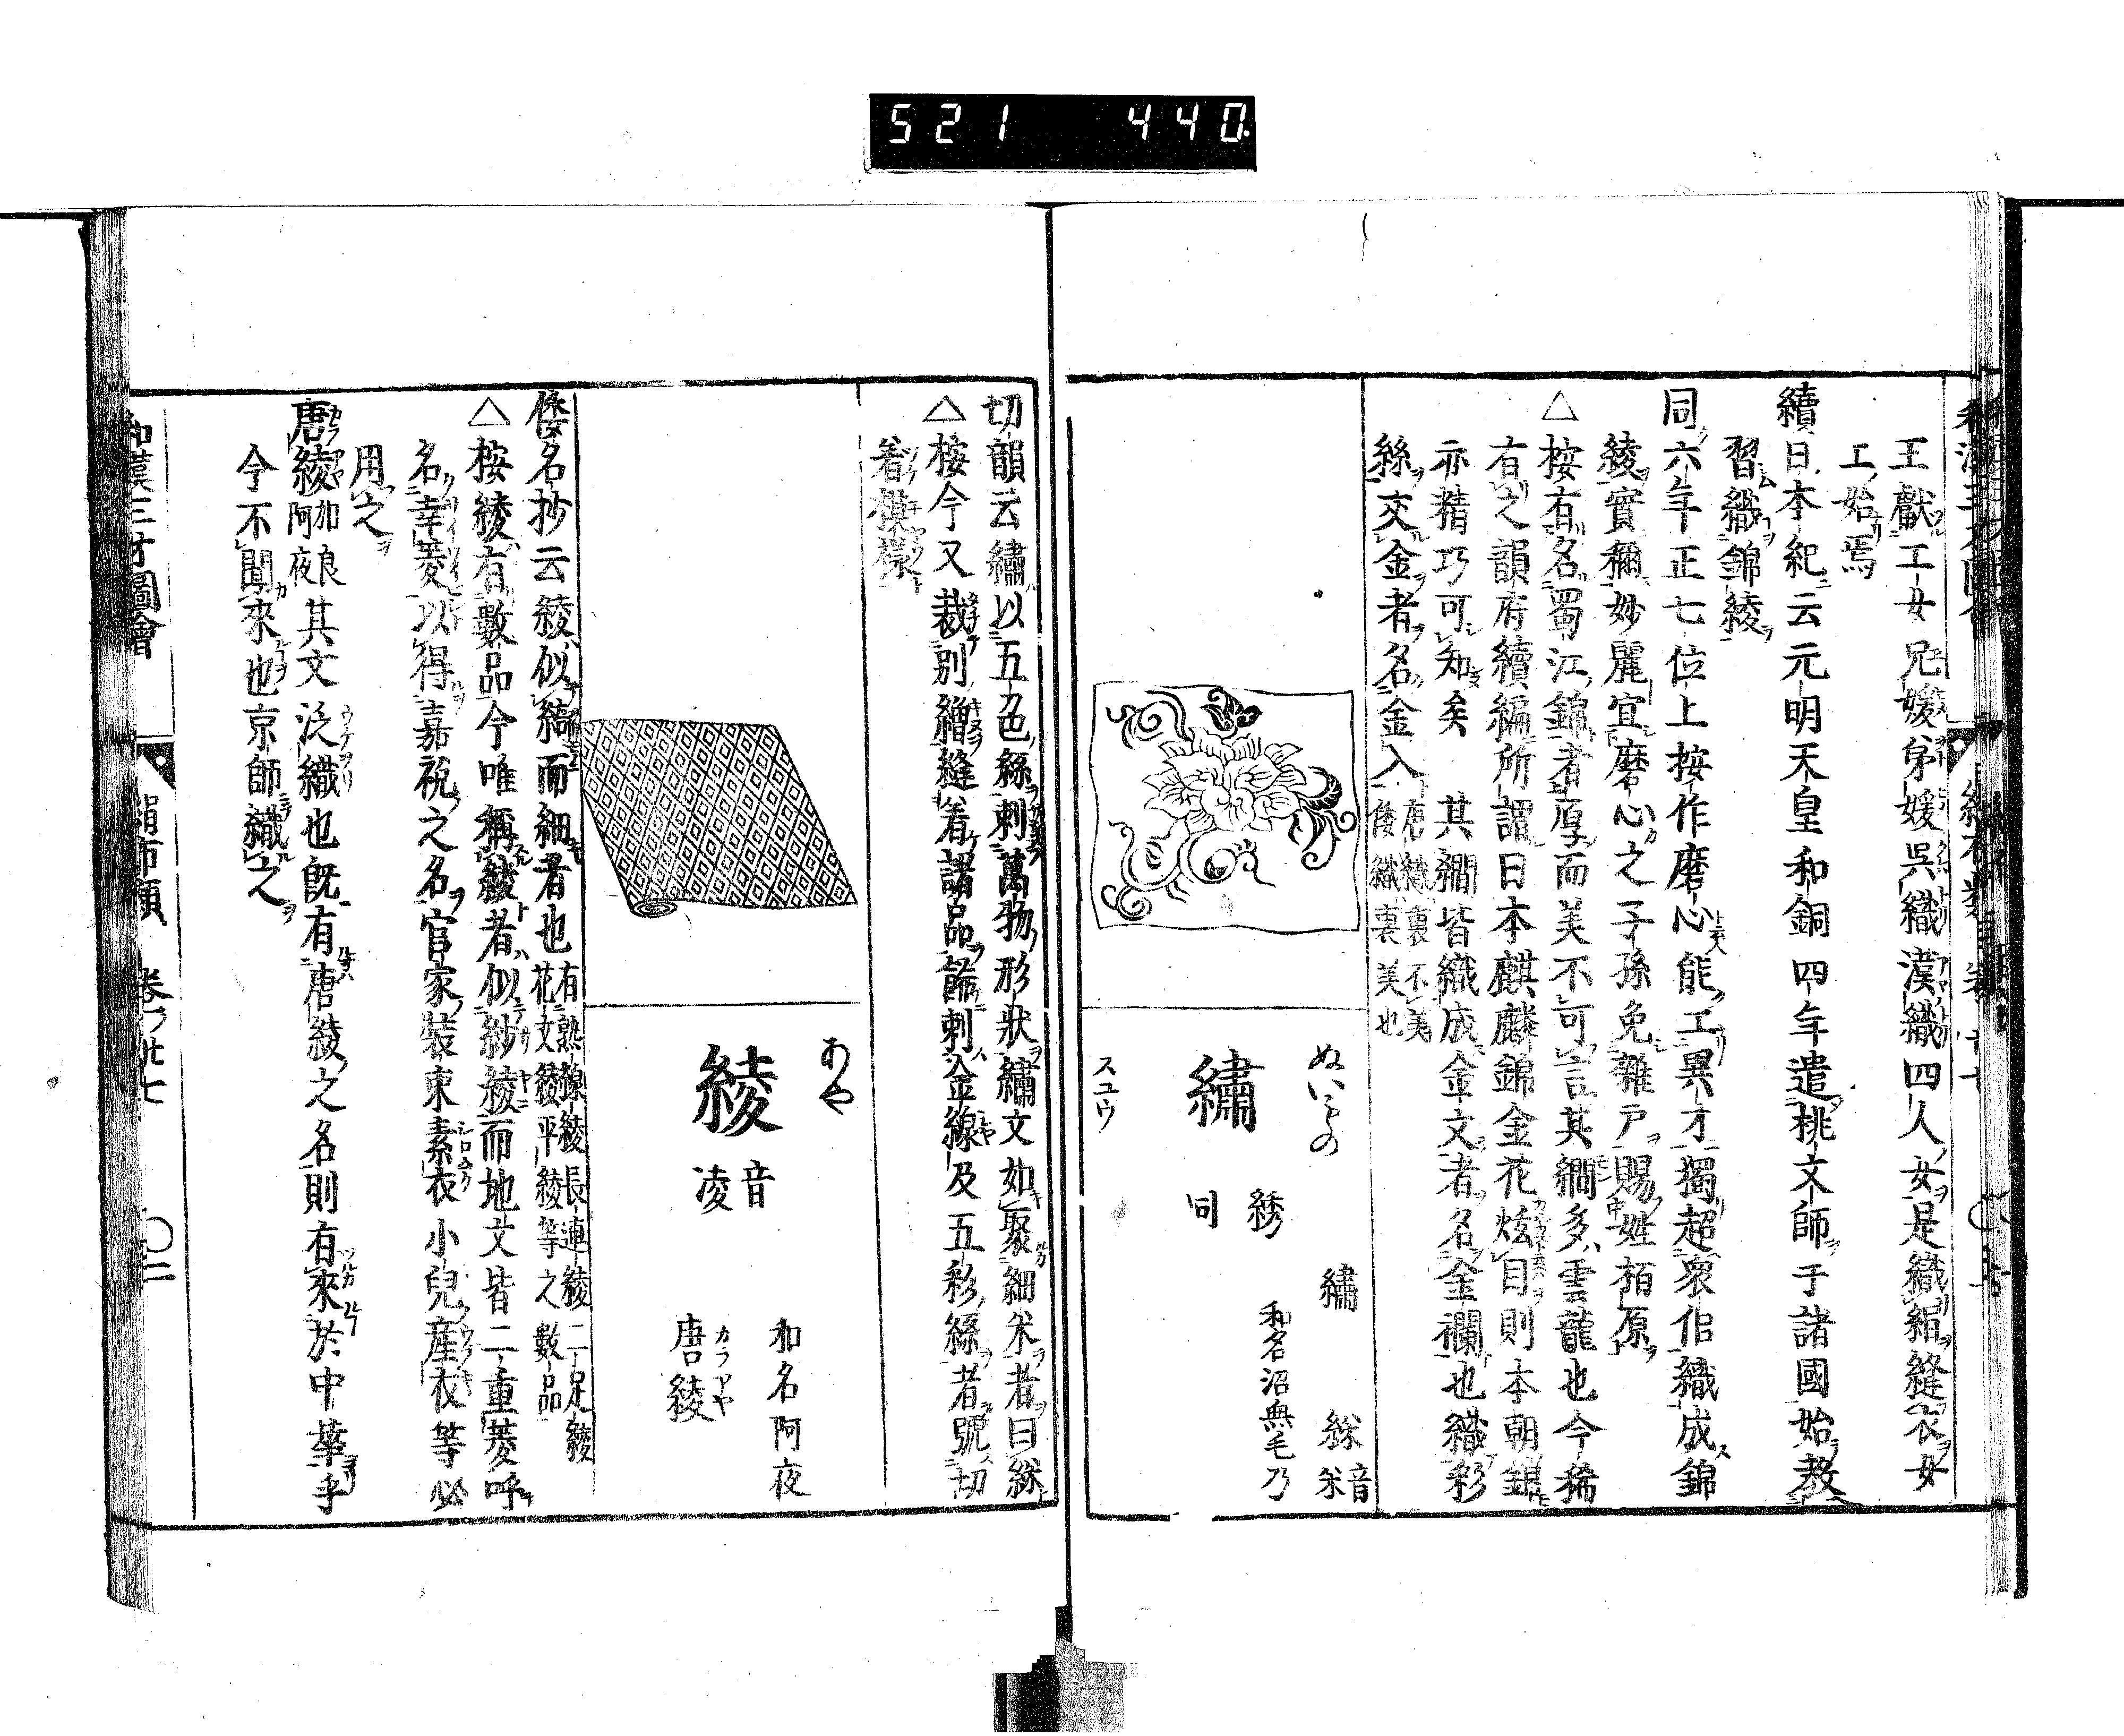 521 440.
王獻工女兄媛弟媛吳織漢織四人女是織絹縫衣女
工始焉
續日本紀云元明天皇和銅四年遣桃文師于諸國始教
習織錦綾
同六年正七位上桉作磨心能工異才獨超衆侶織成錦
綾實稱妙麗宜磨心之子孫免雜戸賜姓栢原
△桉右名蜀江錦者厚而美不可言其繝多雲龍也今稀
有之韻府續編所謂日本麒麟錦金花炫目則本朝錦
亦精巧可知矣 其繝皆織成金文者名金襴也織彩
絲交金者名金入 唐織裏不美 倭織裏美也
ぬいもの
繡
スユウ
綉 同
繡
絲 音米
和名沼無毛乃
切韻云繡以五色絲刺萬物形狀繡文如聚細米者曰絲
△桉今又裁別繒縫着諸品飾刺金線及五彩絲者號切
着模樣
あや
綾
音凌
和名阿夜
カラアヤ
唐綾
倭名抄云綾似綺而細者也 有熟線綾長連綾二足綾 花文綾平綾等之數品
△桉綾有數品今唯稱綾者似紗綾而地文皆二重菱呼
名幸菱以得嘉祝之名官家裝束素衣小兒産衣等必
用之
唐綾 加良阿夜 其文泛織也既有唐綾之名則有來於中華乎
今不聞來也京師織之
和漢三才圖會 絹布類 卷ノ廿七 〇二